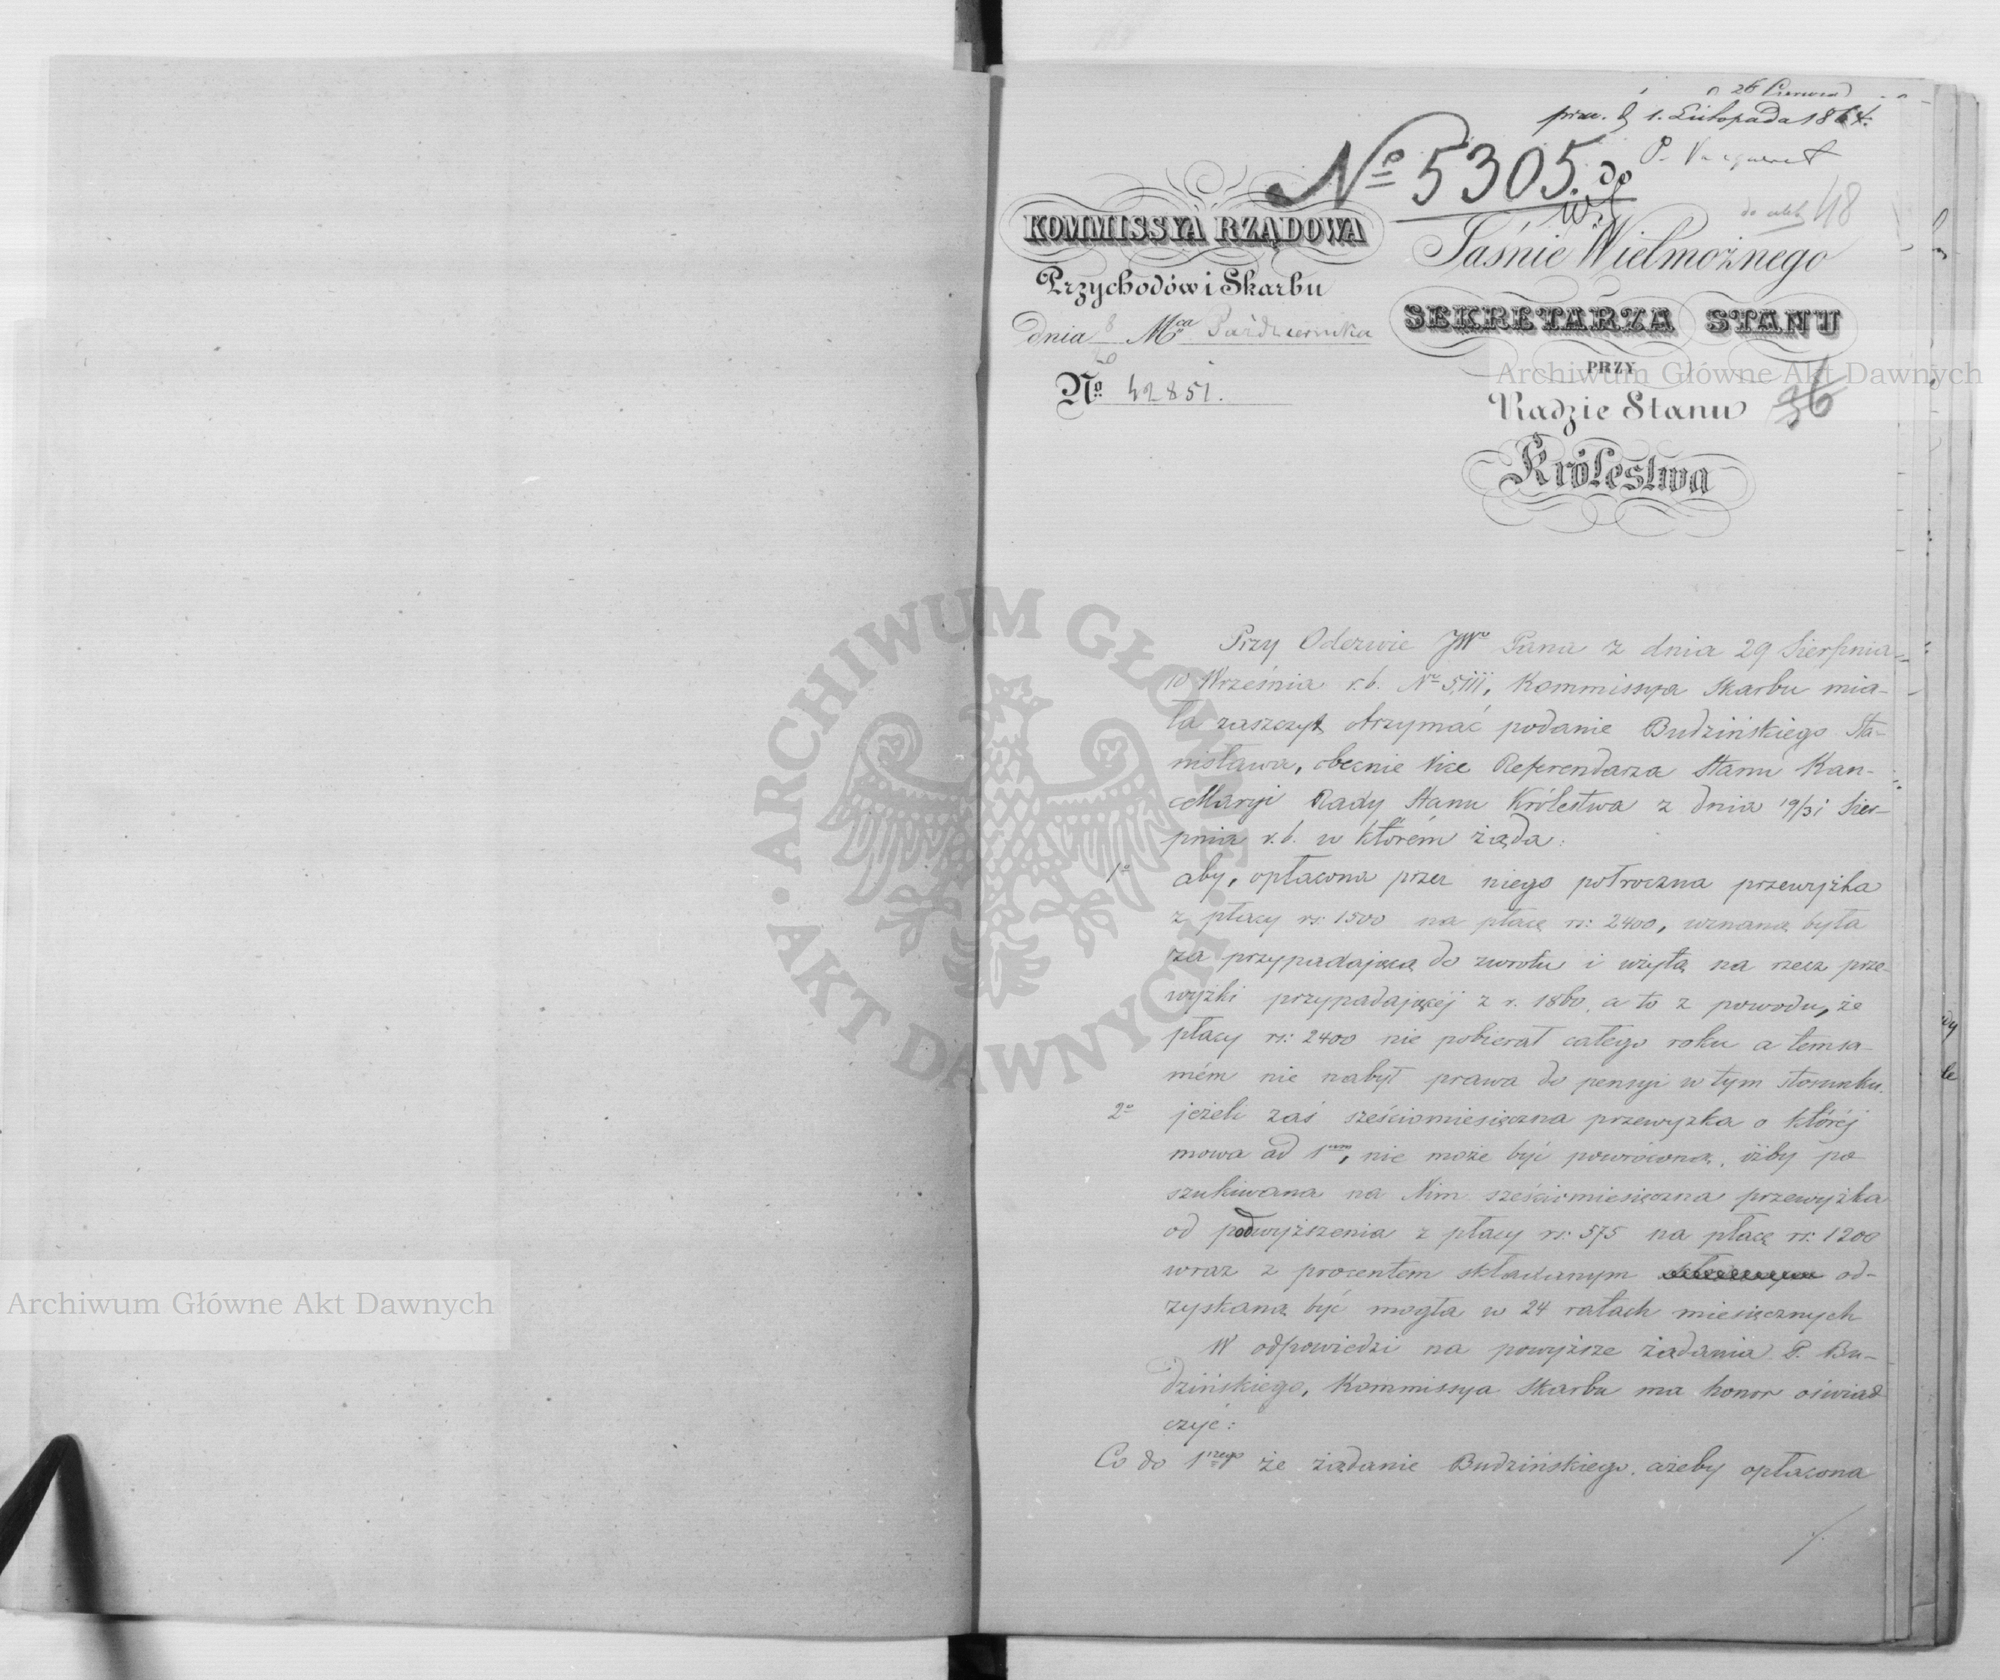 prez. d. 1. Listopada 1864.
Nº 5305.
do
48
KOMMISSYA RZĄDOWA
Przychodów i Skarbu
dnia 8 Mca Października
Nº 42851.
Jaśnie Wielmożnego
SEKRETARZA STANU
PRZY
Radzie Stanu
36
Królestwa
Przy Odezwie JWº Pana z dnia 29 Sierpnia
10 Września r.b. Nº 5111, Kommissya Skarbu mia-
ła zaszczyt otrzymać podanie Budzińskiego Sta-
nisława, obecnie Vice Referendarza Stanu Kan-
cellaryi Rady Stanu Królestwa z dnia 19/31 Sier-
pnia r.b. w którém żąda:
1º aby, opłacona przez niego półroczna przewyżka
z płacy rs: 1500 na płacę rs: 2400, uznaną była
za przypadającą do zwrotu i użytą na rzecz prze-
wyżki przypadającéj z r. 1860, a to z powodu, że
płacy rs: 2400 nie pobierał całego roku a temsa-
mém nie nabył prawa do pensyi w tym stosunku.
2º jeżeli zaś sześciomiesięczna przewyżka o któréj
mowa ad 1um, nie może być powróconą, iżby po
szukiwana na Nim sześciomiesięczna przewyżka
od podwyższenia z płacy rs: 575 na płacę rs: 1200
wraz z procentem składanym od-
zyskaną być mogła w 24 ratach miesięcznych
W odpowiedzi na powyższe żądania P. Bu-
dzińskiego, Kommissya Skarbu ma honor oświad
czyć:
Co do 1szego że żądanie Budzińskiego, ażeby opłacona
Archiwum Główne Akt Dawnych
Archiwum Główne Akt Dawnych
ARCHIWUM GŁÓWNE AKT DAWNYCH